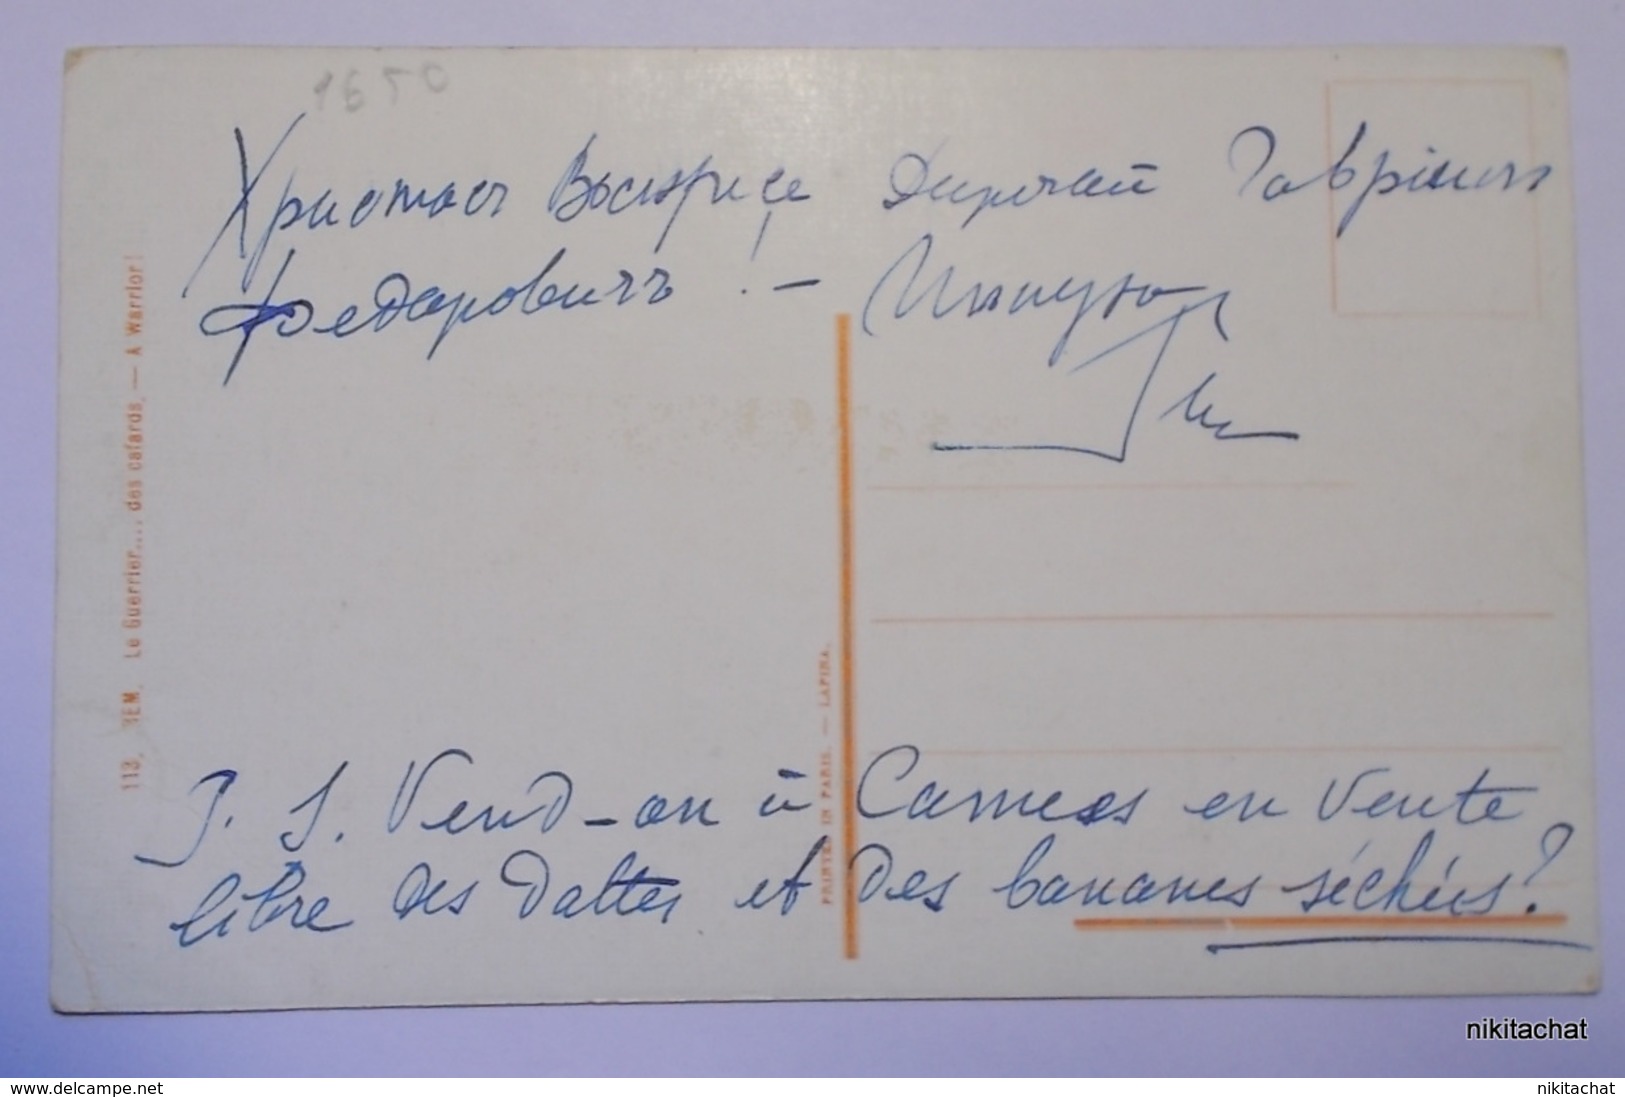 1650
Христосъ Воскресе Дорогой Гавріилъ
Федоровичъ! —
113. XEM. Le Guerrier.... des cafards. — A Warrior!
PRINTED IN PARIS. — LAPINA.
P. S. Vend-on à Cannes en vente
libre des dattes et des bananes séchées?
nikitachat
www.delcampe.net
nikitachat